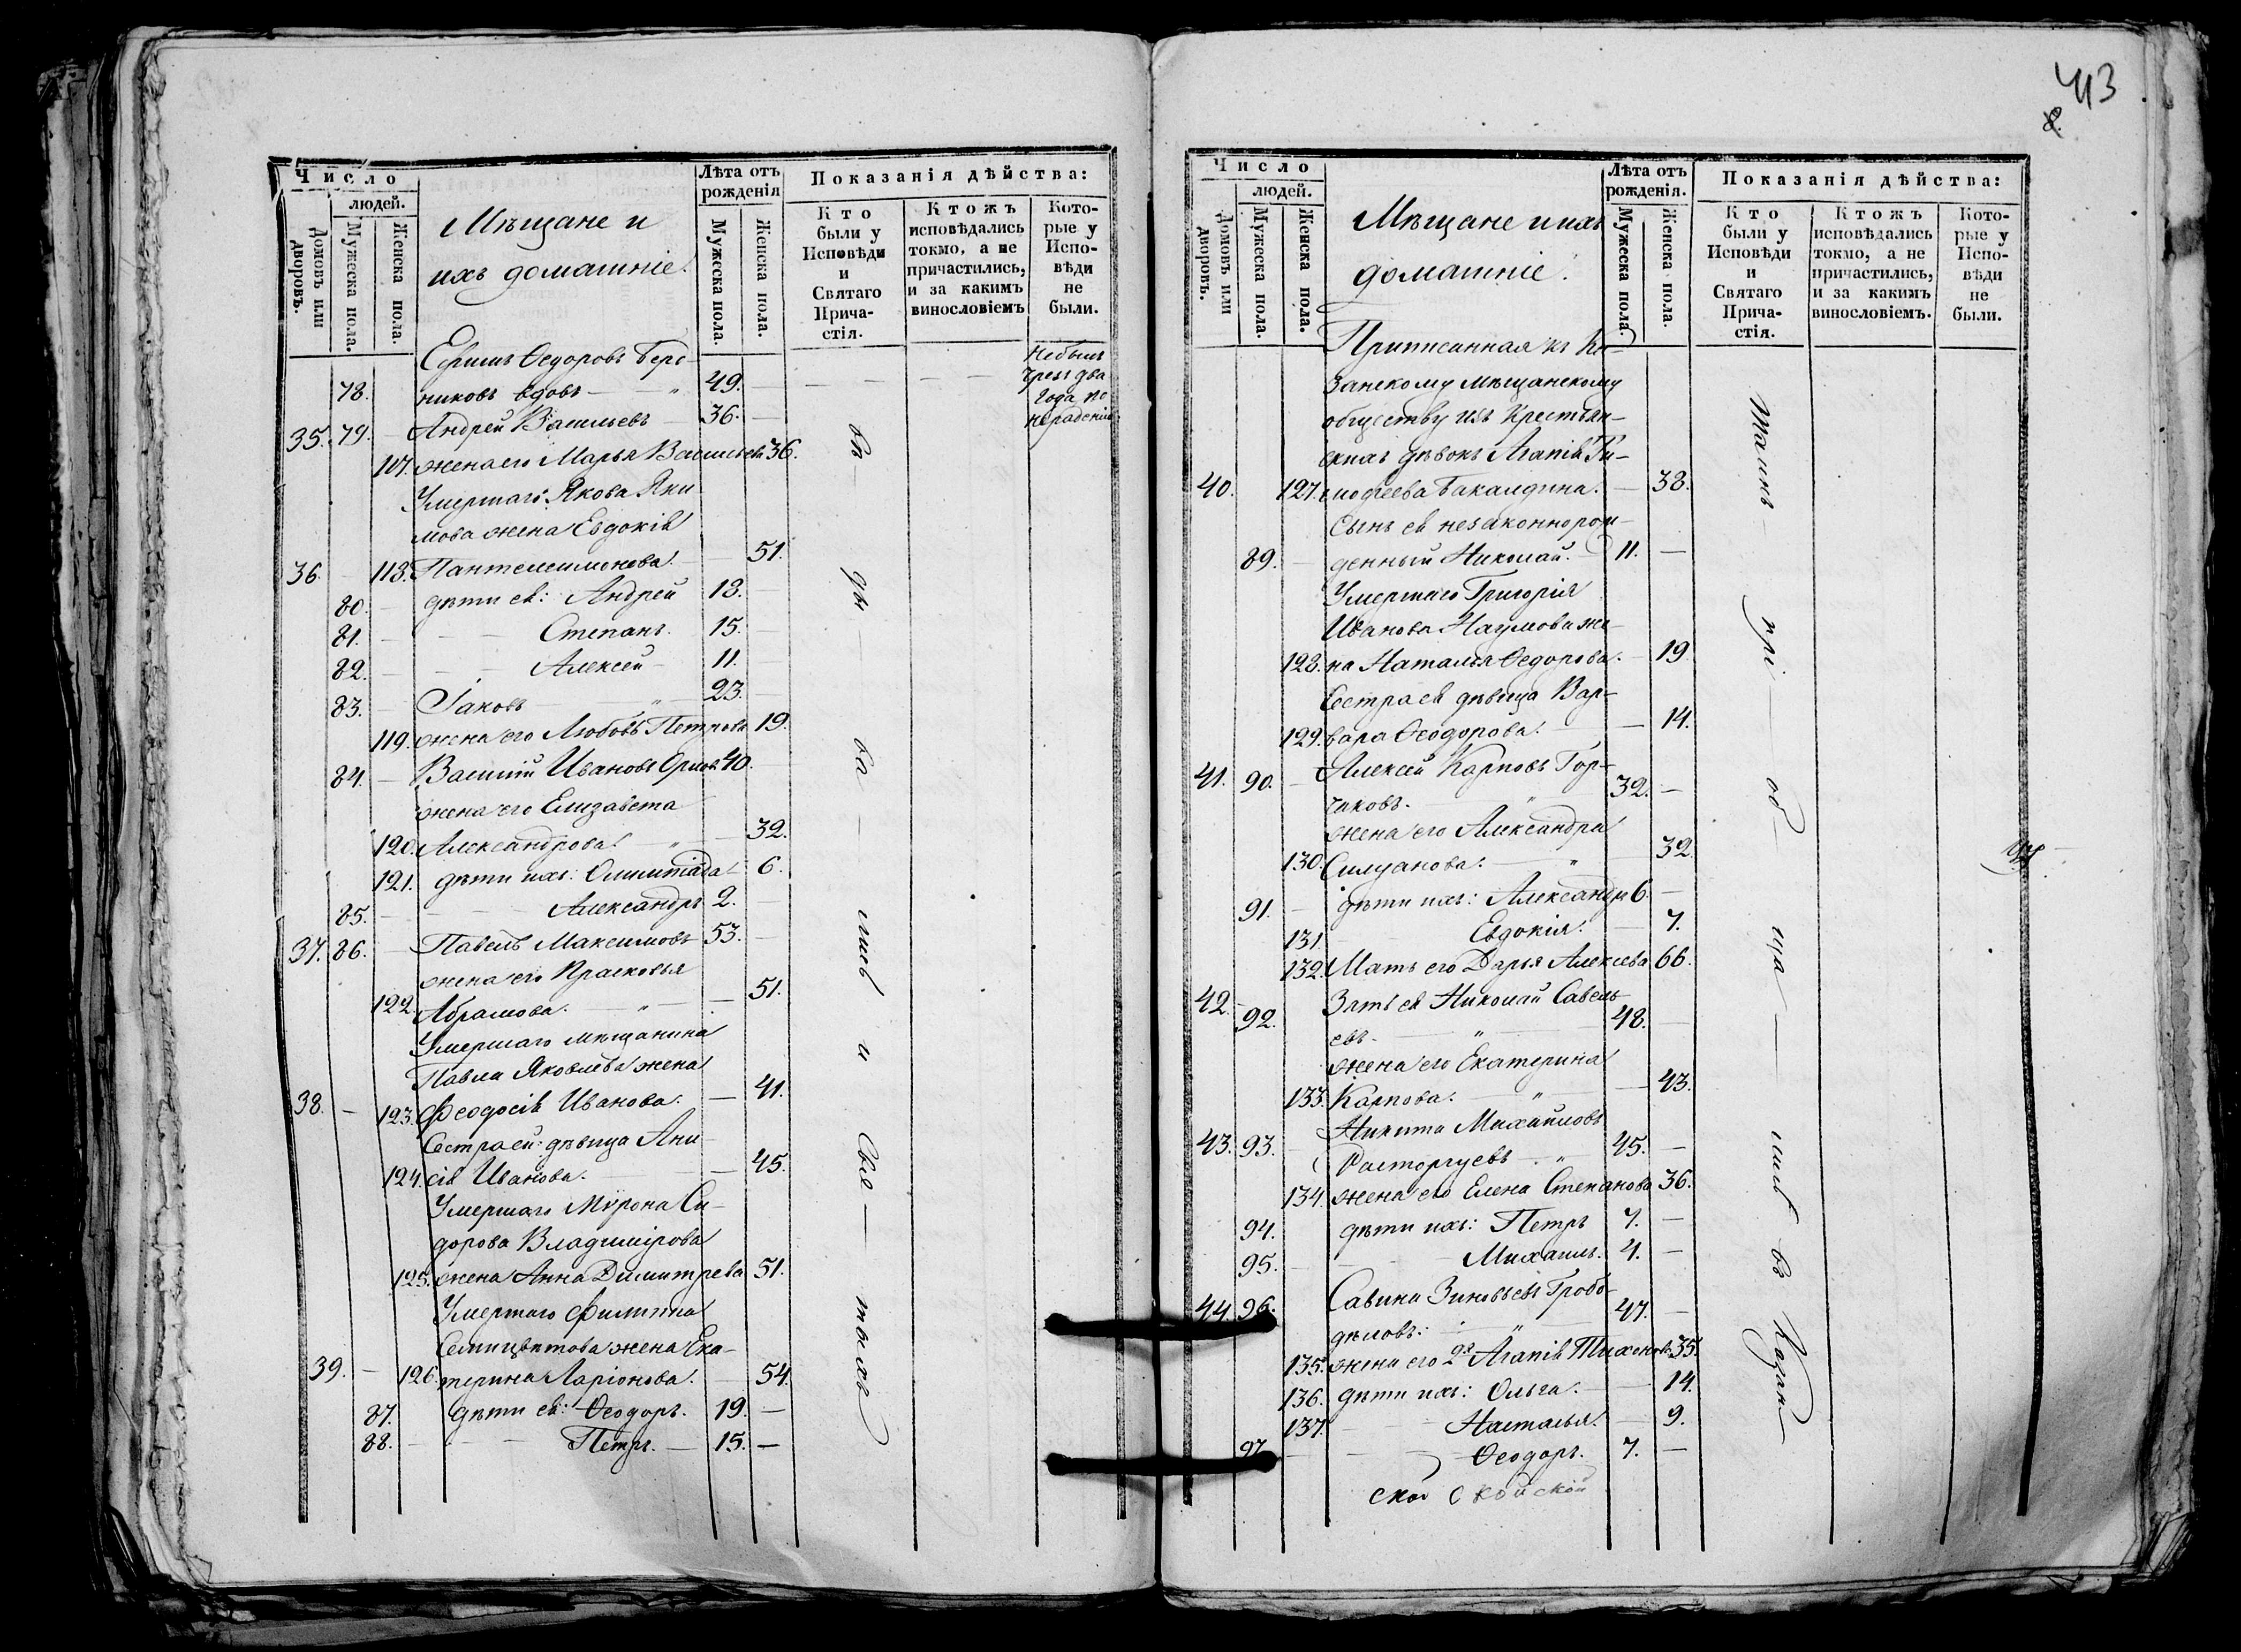 413
8.
Число
людей.
Домовъ или дворовъ.
Мужеска пола.
Женска пола.
Мѣщане и
ихъ домашніе.
Лѣта отъ рожденія
Мужеска пола.
Женска пола.
Показанія дѣйства:
Кто были у Исповѣди и Святаго Причастія.
Ктожъ исповѣдались токмо, а не причастились, и за какимъ винословіемъ
Которые у Исповѣди не были.
Ефимъ Ѳедоровъ
78. никовъ вдовъ — 49. —
Небылъ
чрезъ два
года по
нерадѣнію
35. 79. — Андрей Васильевъ 36. —
117. жена его Марья Васильева 36.
Умершаго Якова Яки
мова жена Евдокія
36. — 118. Пантелеимонова. — 51.
80. — дѣти ея: Андрей 18. —
81. — — Степанъ. 15. —
82. — — Алексѣй — 11. —
83. — Іаковъ „ 23. —
119. жена его Любовь Петрова 19.
84. — Василій Ивановъ Орлов 40. —
жена его Елизавета
120. Александрова. — „ — 32.
121. дѣти ихъ: Олимпіада 6.
85. — — — Александръ 2. —
37. 86. — Павелъ Максимовъ 53. —
жена его Прасковья
122. Абрамова. „ — 51.
Умершаго мѣщанина
Павла Яковлева жена
38. — 123. Феодосія Иванова. — 41.
Сестра ей: дѣвица Ани
124. сія Иванова. — 45.
Умершаго Мѵрона Си-
дорова Владимірова
125. жена Анна Димитрева 51.
Умершаго Филиппа
Семицвѣтова жена Ека-
39. — 126. терина Ларіонова. — 54.
87. дѣти ея: Ѳеодоръ. 19. —
88. — — — Петръ. — 15. —
Число
людей.
Домовъ или дворовъ.
Мужеска пола.
Женска пола.
Мѣщане и ихъ
домашніе.
Лѣта отъ рожденія.
Мужеска пола.
Женска пола.
Показанія дѣйства:
Кто были у Исповѣди и Святаго Причастія.
Ктожъ исповѣдались токмо, а не причастились, и за какимъ винословіемъ.
Которые у Исповѣди не были.
Приписанная къ Ка-
занскому мѣщанскому
обществу изъ крестьян-
скихъ дѣвокъ Агапія Ти-
40. 127. моѳеева Бакалдина. — 38.
Сынъ ея незаконнорож-
89. — денный Николай. 11. —
Умершаго Григорія
Иванова Наумова же-
128. на Наталья Ѳедорова. — 19
Сестра ея дѣвица Вар-
129. вара Ѳеодорова. — 14.
41. 90. — Алексѣй Карповъ Гор-
чаковъ. „ 32. —
жена его Александра
130. Силуанова. — „ 32
91. — дѣти ихъ: Александръ 6. —
131 Евдокія. — 7.
132. Мать его Дарья Алексѣева 66.
42. 92. Зять ея Николай Савель-
евъ. „ 48. —
жена его Екатерина
133. Карпова. — „ — 43.
43. 93. — Никита Михайловъ
Расторгуевъ „ 45. —
134. жена его Елена Степанова 36.
94. дѣти ихъ: Петръ 7. —
95. — Михаилъ. 4. —
44. 96. Савина Зиновьевъ Гробо-
дѣловъ: „ 47. —
135. жена его 2я Агапія Тихонов. 35.
136. дѣти ихъ: Ольга. — 14.
137. Наталья. — 9.
97 — — Ѳеодоръ. 7. —
ской ской ской